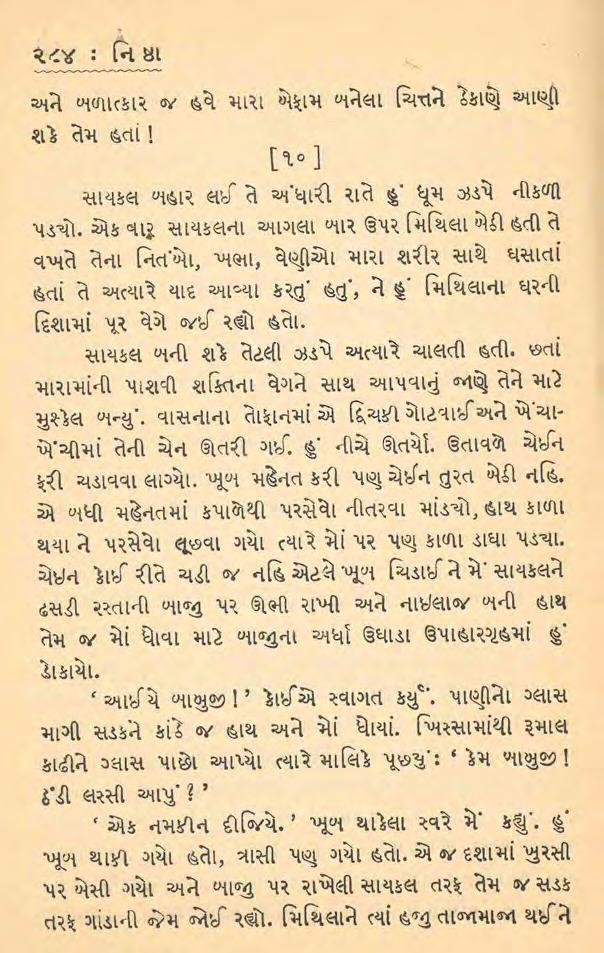 ૨૮૪ : નિષ્ઠા
અને બળાત્કાર જ હવે મારા બેફામ બનેલા ચિત્તને ઠેકાણે આણી
શકે તેમ હતાં !
[ ૧૦ ]
સાયકલ બહાર લઈ તે અંધારી રાતે હું ધૂમ ઝડપે નીકળી
પડચો. એક વાર સાયકલના આગલા બાર ઉપર મિથિલા બેઠી હતી તે
વખતે તેના નિતંબો, ખભા, વેણીઓ મારા શરીર સાથે ઘસાતાં
હતાં તે અત્યારે યાદ આવ્યા કરતું હતું, ને હું મિથિલાના ઘરની
દિશામાં પૂર વેગે જઈ રહ્યો હતો.
સાયકલ બની શકે તેટલી ઝડપે અત્યારે ચાલતી હતી. છતાં
મારામાંની પાશવી શક્તિના વેગને સાથ આપવાનું જાણે તેને માટે
મુશ્કેલ બન્યું. વાસનાના તોફાનમાં એ દ્વિચક્રી ગોટવાઈ અને ખેંચા-
ખેંચીમાં તેની ચેન ઊતરી ગઈ. હું નીચે ઊતર્યો. ઉતાવળે ચેઈન
ફરી ચડાવવા લાગ્યો. ખૂબ મહેનત કરી પણ ચેઈન તુરત બેઠી નહિ.
એ બધી મહેનતમાં કપાળેથી પરસેવો નીતરવા માંડચો, હાથ કાળા
થયા ને પરસેવો લૂછવા ગયો ત્યારે મોં પર પણ કાળા ડાઘા પડચા.
ચેઈન કોઈ રીતે ચડી જ નહિ એટલે ખૂબ ચિડાઈ ને મેં સાયકલને
ઢસડી રસ્તાની બાજુ પર ઊભી રાખી અને નાઈલાજ બની હાથ
તેમ જ મોં ધોવા માટે બાજુના અર્ધા ઉઘાડા ઉપાહારગૃહમાં હું
ડોકાયો.
‘ આઈયે બાબુજી ! ’ કોઈએ સ્વાગત કર્યું. પાણીનો ગ્લાસ
માગી સડકને કાંઠે જ હાથ અને મોં ધોયાં. ખિસ્સામાંથી રૂમાલ
કાઢીને ગ્લાસ પાછો આપ્યો ત્યારે માલિકે પૂછયું : ‘ કેમ બાબુજી !
ઠંડી લસ્સી આપું ? ’
‘ એક નમકીન દીજિયે. ’ ખૂબ થાકેલા સ્વરે મેં કહ્યું. હું
ખૂબ થાકી ગયો હતો, ત્રાસી પણ ગયો હતો. એ જ દશામાં ખુરસી
પર બેસી ગયો અને બાજુ પર રાખેલી સાયકલ તરફ તેમ જ સડક
તરફ ગાંડાની જેમ જોઈ રહ્યો. મિથિલાને ત્યાં હજુ તાજામાજા થઈને